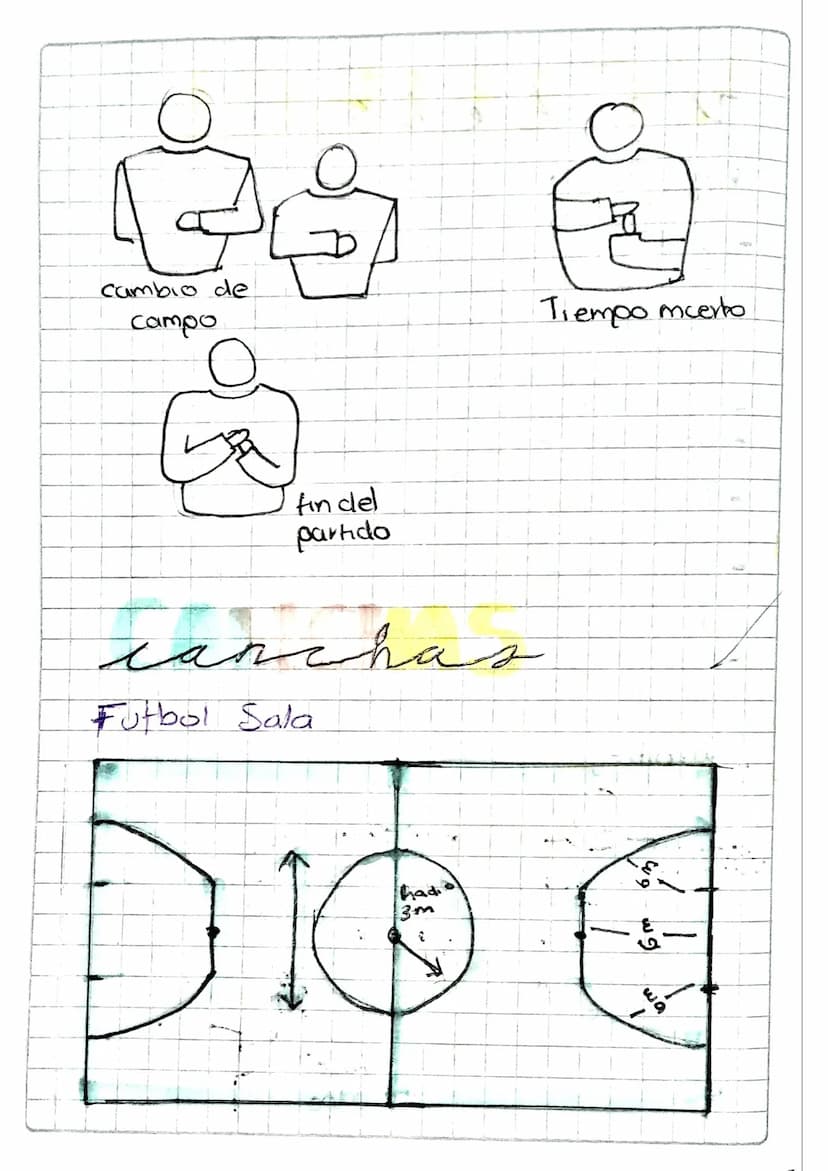 cambio de
campo
Tiempo mcerto
fin del
partido
canchas
Futbol Sala
Radio
3m